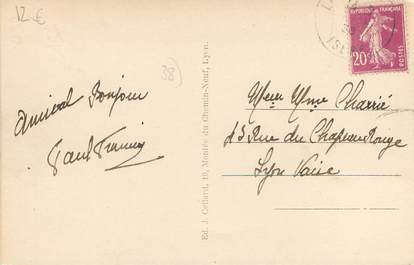 12 €
38)
Amical Bonjour
Ed. J. Cellard, 19, Montée du Chemin-Neuf, Lyon.
RÉPUBLIQUE FRANÇAISE
20c
POSTES
Mme Charrié
13 Rue du Chapeau Rouge
Lyon Vaise